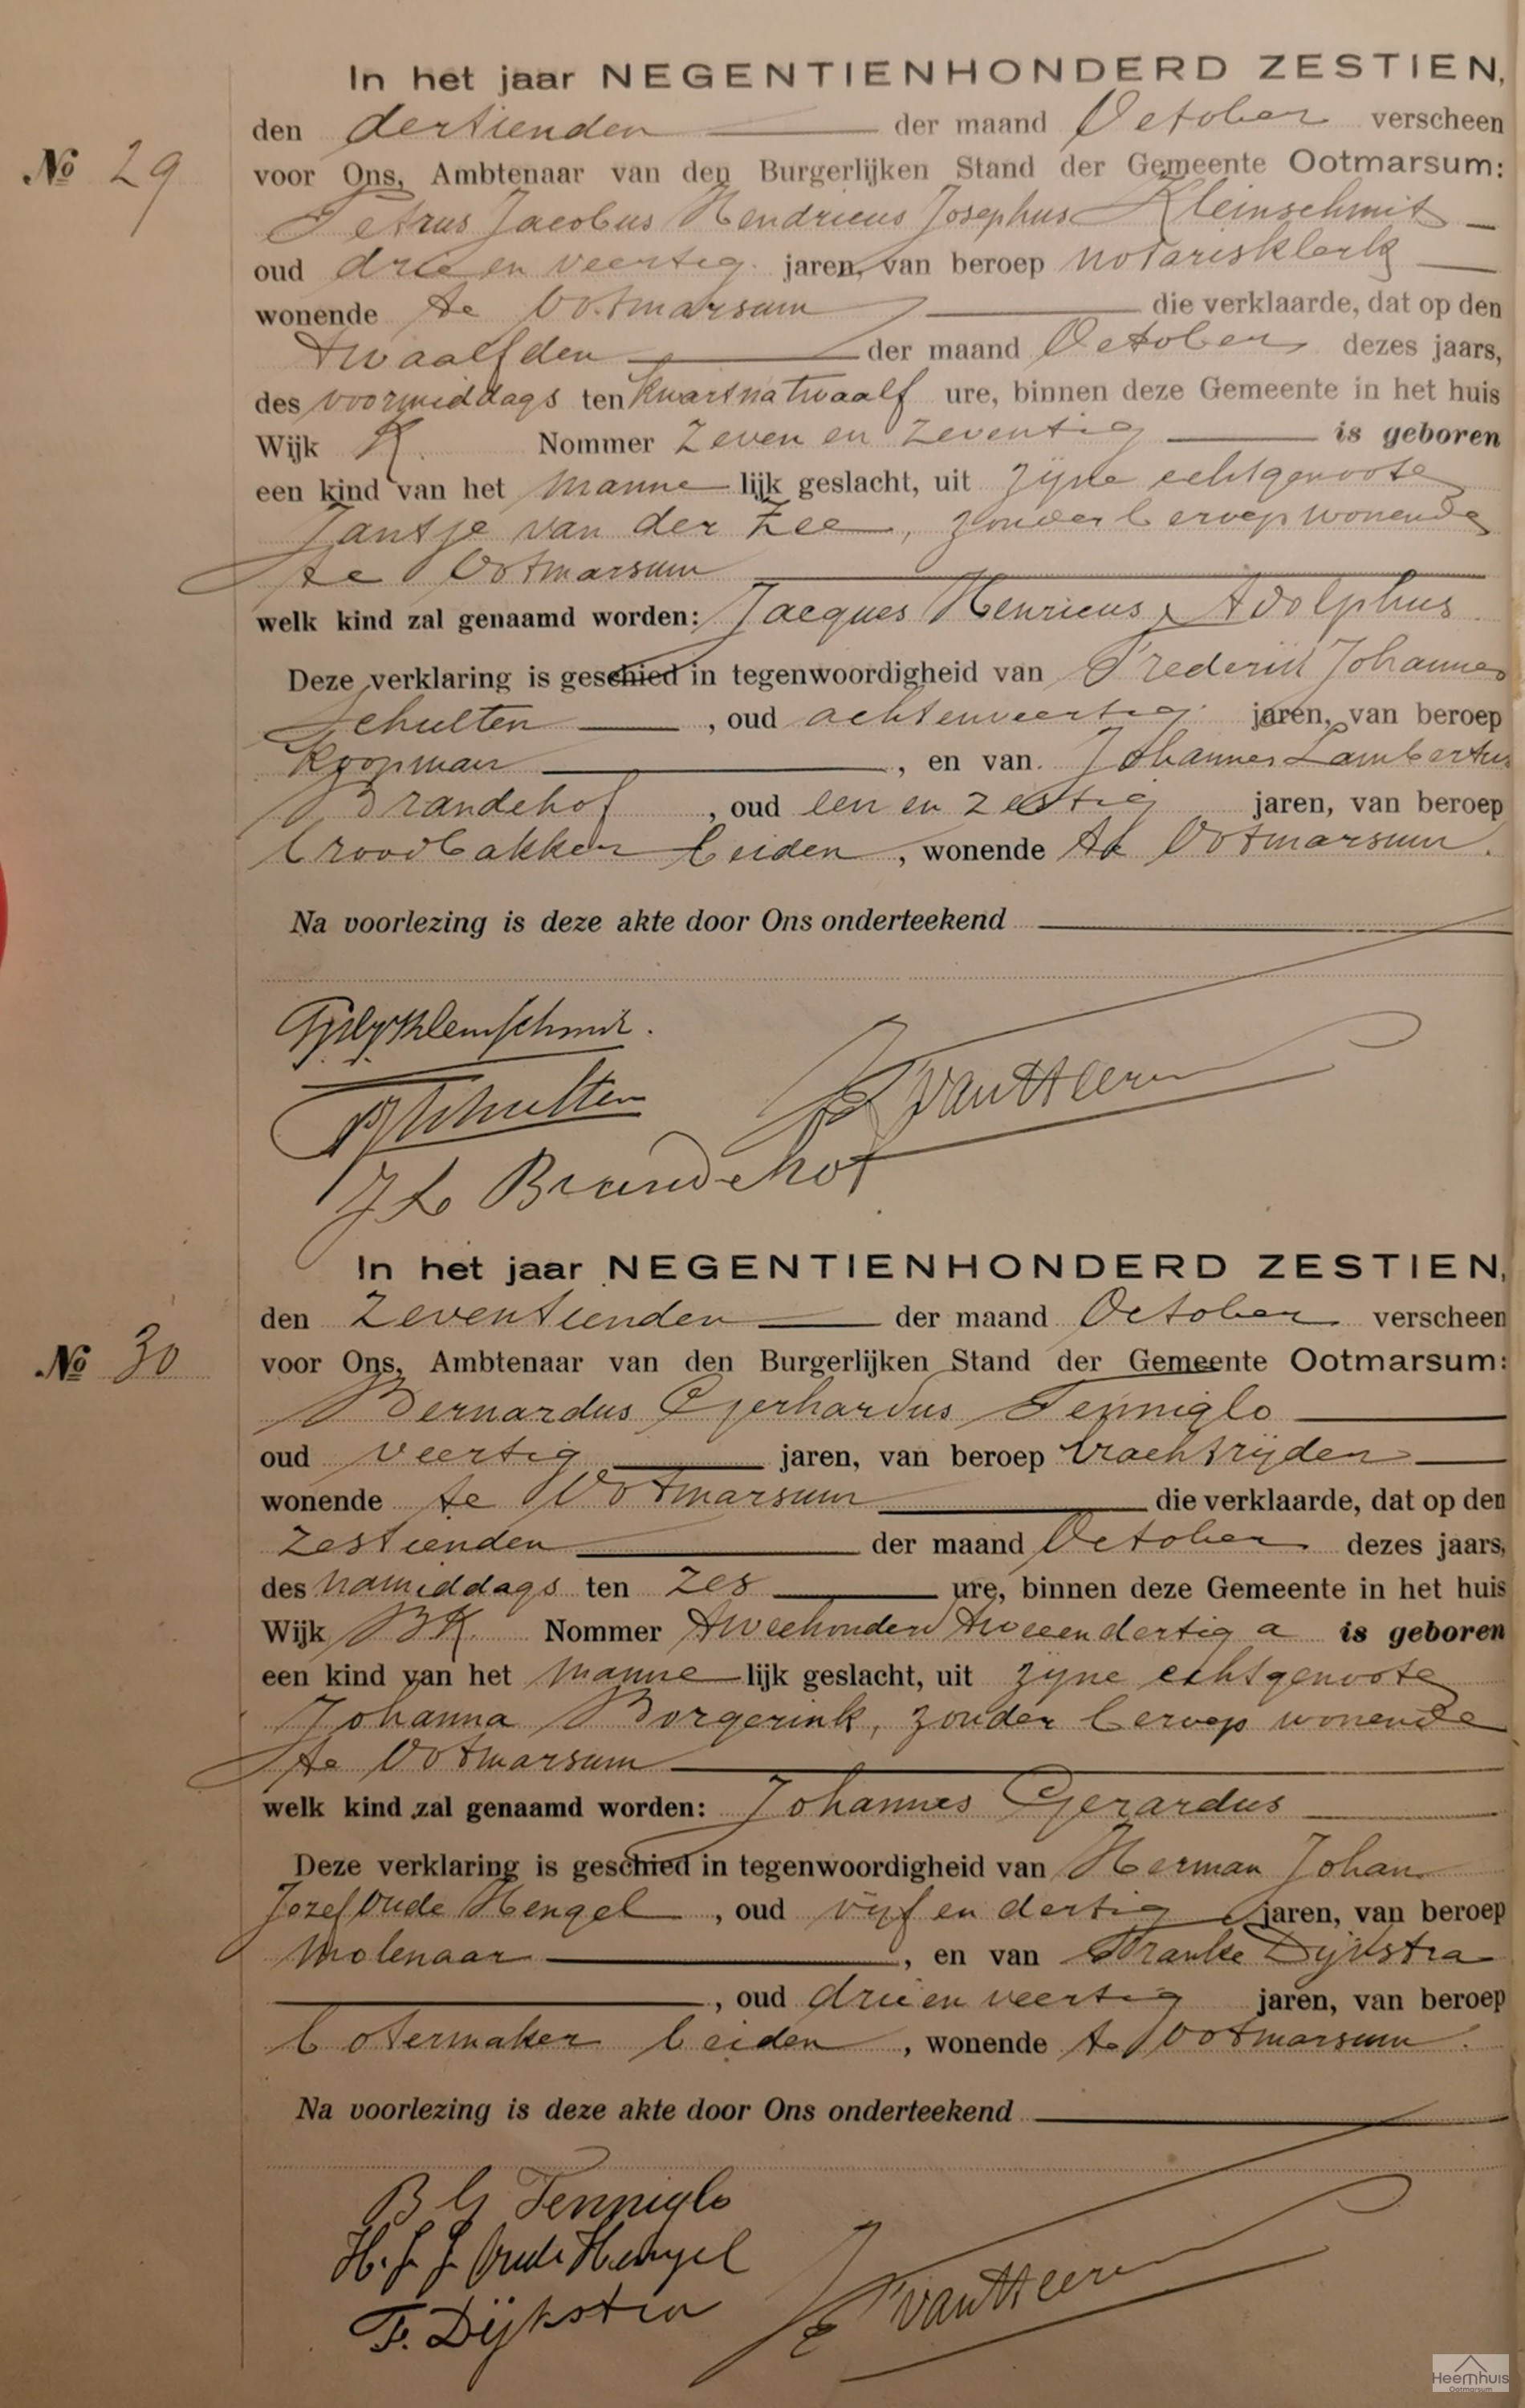 In het jaar NEGENTIENHONDERD ZESTIEN,
den dertienden der maand October verscheen
No 29
voor Ons, Ambtenaar van den Burgerlijken Stand der Gemeente Ootmarsum:
Petrus Jacobus Hendricus Josephus Kleinschmit
oud drie en veertig jaren, van beroep notarisklerk
wonende te Ootmarsum die verklaarde, dat op den
twaalfden der maand October dezes jaars,
des voormiddags ten kwart na twaalf ure, binnen deze Gemeente in het huis
Wijk K. Nommer zeven en zeventig is geboren
een kind van het manne lijk geslacht, uit zijne echtgenoote
Jantje van der Zee, zonder beroep wonende
te Ootmarsum
welk kind zal genaamd worden: Jacques Henricus Adolphus
Deze verklaring is geschied in tegenwoordigheid van Frederik Johannes
Schulten, oud achtenveertig jaren, van beroep
Koopman, en van Johannes Lambertus
Brandehof, oud een en zestig jaren, van beroep
broodbakker beiden, wonende te Ootmarsum.
Na voorlezing is deze akte door Ons onderteekend
Kleinschmit.
FJ Schulten
van Heern
J L Brandehof
In het jaar NEGENTIENHONDERD ZESTIEN,
den Zeventienden der maand October verscheen
No 30
voor Ons, Ambtenaar van den Burgerlijken Stand der Gemeente Ootmarsum:
Bernardus Gerhardus Tenniglo
oud veertig jaren, van beroep vrachtrijder
wonende te Ootmarsum die verklaarde, dat op den
zestienden der maand October dezes jaars,
des namiddags ten zes ure, binnen deze Gemeente in het huis
Wijk BK. Nommer tweehonderd tweeendertig a is geboren
een kind van het manne lijk geslacht, uit zijne echtgenoote
Johanna Borgerink, zonder beroep wonende
te Ootmarsum
welk kind zal genaamd worden: Johannes Gerardus
Deze verklaring is geschied in tegenwoordigheid van Herman Johan
Jozef Oude Hengel, oud vijf en dertig jaren, van beroep
molenaar, en van Franke Dijkstra
, oud drie en veertig jaren, van beroep
botermaker beiden, wonende te Ootmarsum.
Na voorlezing is deze akte door Ons onderteekend
B G Tenniglo
H. J. J. Oude Hengel
F. Dijkstra
van Heern
Heemhuis
Ootmarsum